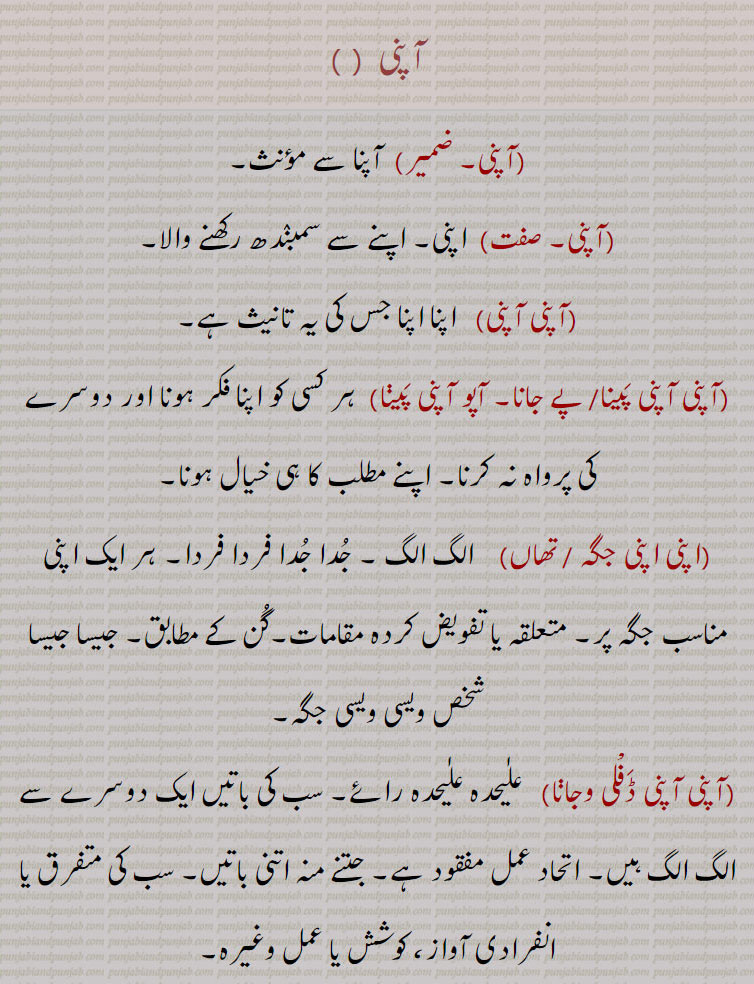 آپنی ( )
(آپنی۔ ضمیر) آپنا سے مؤنث۔
(آپنی۔ صفت) اپنی۔ اپنے سے سمبن٘دھ رکھنے والا۔
(آپنی آپنی) اپنا اپنا جس کی یہ تانیث ہے۔
(آپنی آپنی پَینا/ پے جانا۔ آپو آپنی پَینݨا) ہر کسی کو اپنا فکر ہونا اور دوسرے
کی پرواہ نہ کرنا۔ اپنے مطلب کا ہی خیال ہونا۔
(اپنی اپنی جگہ / تھاں) الگ الگ ۔ جُدا جُدا فردا فردا۔ ہر ایک اپنی
مناسب جگہ پر۔ متعلقہ یا تفویض کردہ مقامات۔گُن کے مطابق۔ جیسا جیسا
شخص ویسی ویسی جگہ۔
(آپنی آپنی ڈَفْلی وجانݨا) علٰیحدہ علٰیحدہ رائے۔ سب کی باتیں ایک دوسرے سے
الگ الگ ہیں۔ اتحاد عمل مفقود ہے۔ جتنے منہ اتنی باتیں۔ سب کی متفرق یا
انفرادی آواز، کوشش یا عمل وغیرہ۔